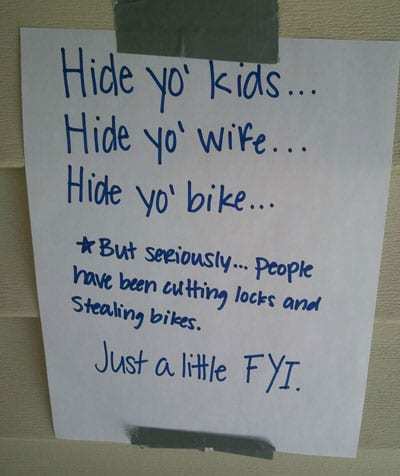 Hide yo' kids...
Hide yo' wife...
Hide yo' bike...
*But seriously... people
have been cutting locks and
Stealing bikes.
Just a little FYI.